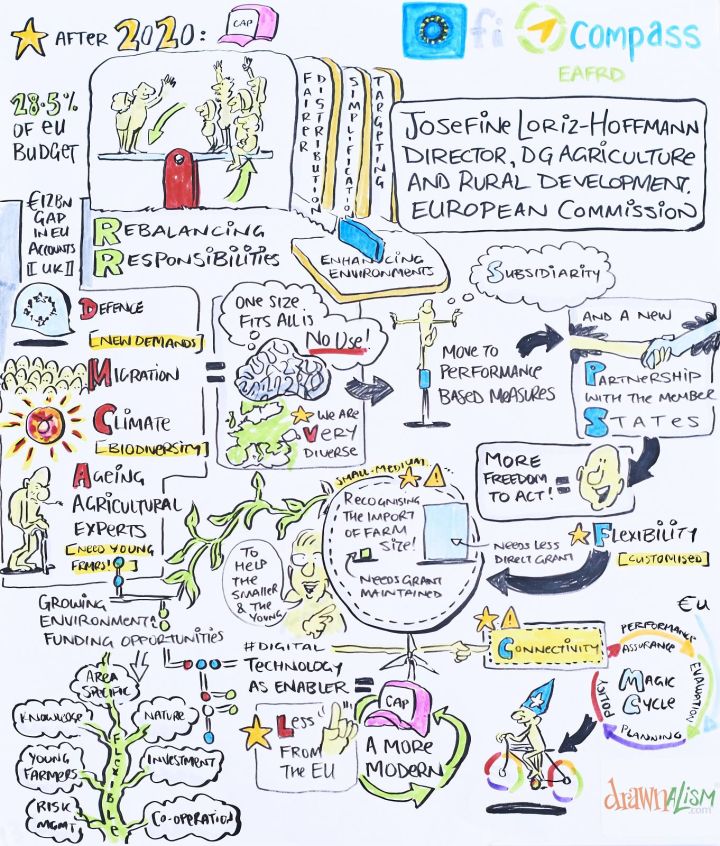 AFTER 2020:
CAP
fi compass
EAFRD
28.5%
OF EU
BUDGET
FAIRER
DISTRIBUTION
SIMPLIFICATION
TARGETING
JOSEFINE LORIZ-HOFFMANN
DIRECTOR, DG AGRICULTURE
AND RURAL DEVELOPMENT.
EUROPEAN COMMISSION
€12BN
GAP
IN EU
ACCOUNTS
[[UK]]
REBALANCING
RESPONSIBILITIES
ENHANCING
ENVIRONMENTS
SUBSIDIARITY
DEFENCE
[NEW DEMANDS]
MIGRATION
CLIMATE
[BIODIVERSITY]
AGEING
AGRICULTURAL
EXPERTS
[NEED YOUNG
FRMRS!]
ONE SIZE
FITS ALL IS
NO USE!
=
WE ARE
VERY
DIVERSE
MOVE TO
PERFORMANCE
BASED MEASURES
AND A NEW
PARTNERSHIP
WITH THE MEMBER
STATES
MORE
FREEDOM
TO ACT! =
SMALL-MEDIUM
RECOGNISING
THE IMPORT
OF FARM
SIZE!
NEEDS GRANT
MAINTAINED
NEEDS LESS
DIRECT GRANT
FLEXIBILITY
[CUSTOMISED]
TO
HELP
THE
SMALLER
& THE
YOUNG
GROWING
ENVIRONMENT!
FUNDING OPPORTUNITIES
AREA
SPECIFIC
KNOWLEDGE
NATURE
YOUNG
FARMERS
INVESTMENT
RISK
MGMT
CO-OPERATION
FLEXIBLE
#DIGITAL
TECHNOLOGY
AS ENABLER =
CAP
A MORE
MODERN
LESS
FROM
THE EU
CONNECTIVITY
€U
PERFORMANCE
ASSURANCE
EVALUATION
PLANNING
POLICY
MAGIC
CYCLE
drawnalism
.com